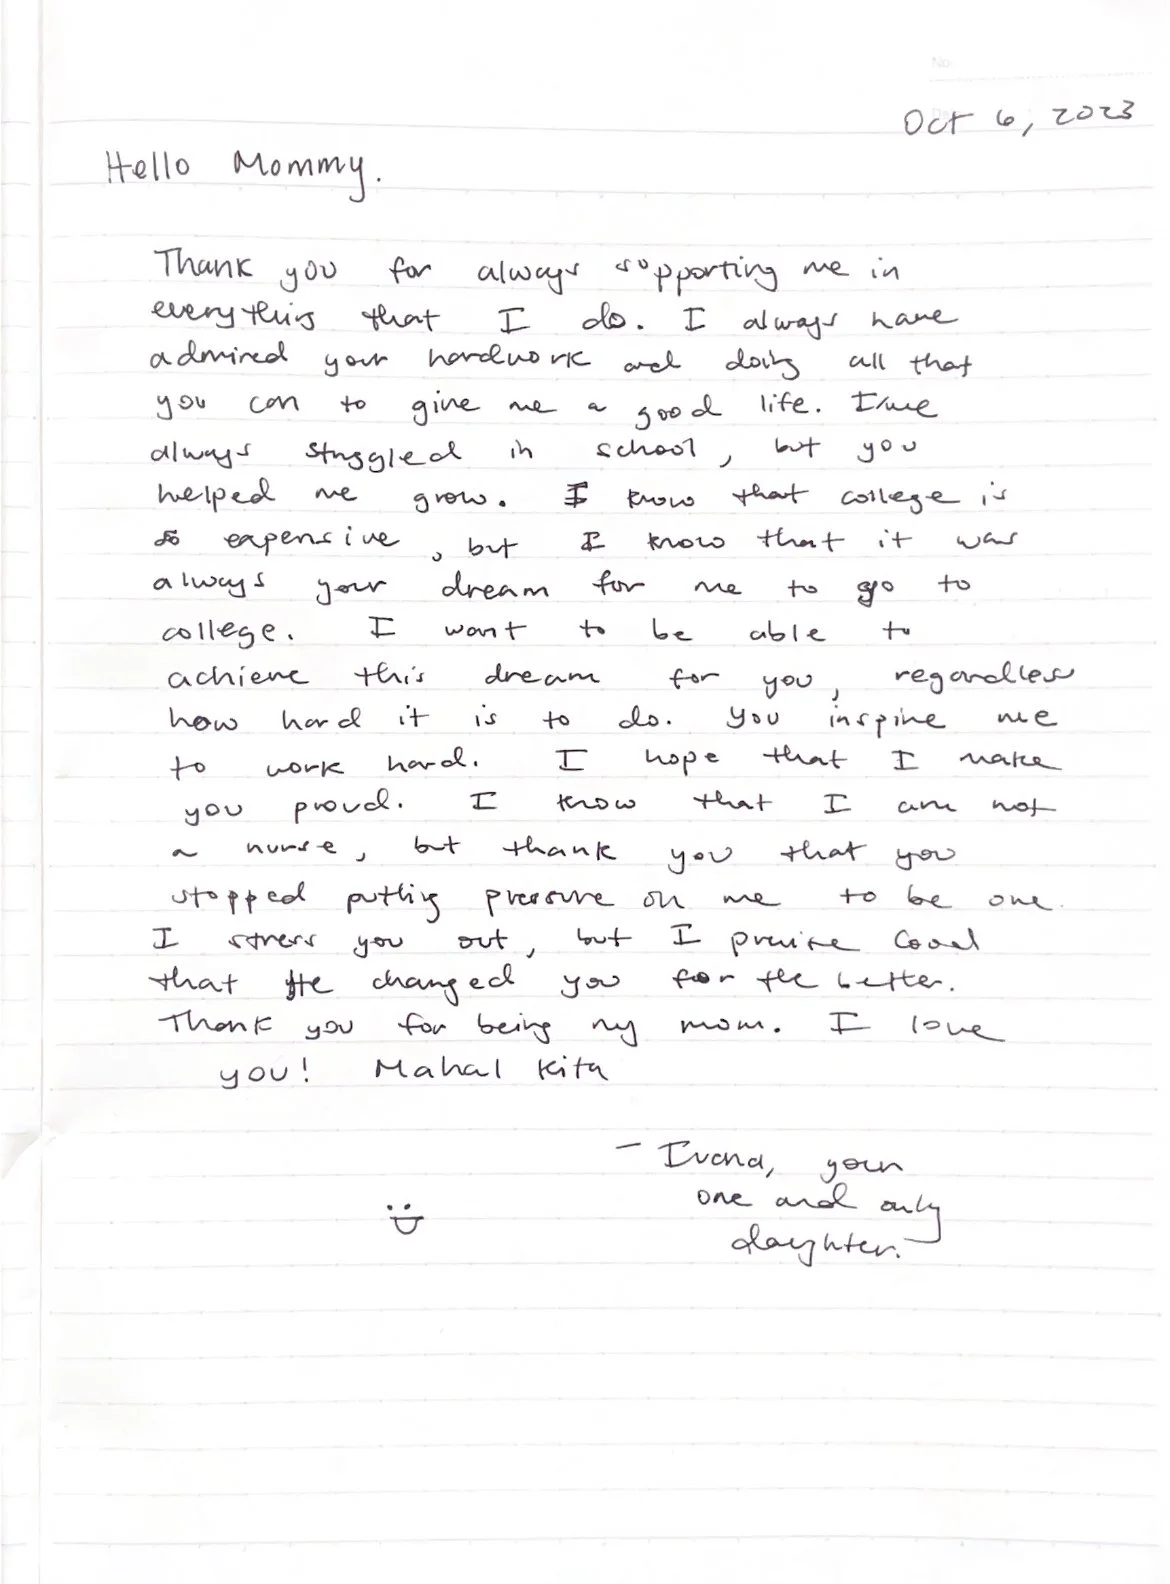 No.
Oct 6, 2023
Hello Mommy.
Thank you for always supporting me in
everything that I do. I always have
admired your hardwork and doing all that
you can to give me a good life. I've
always struggled in school, but you
helped me grow. I know that college is
so expensive, but I know that it was
always your dream for me to go to
college. I want to be able to
achieve this dream for you, regardless
how hard it is to do. You inspire me
to work hard. I hope that I make
you proud. I know that I am not
a nurse, but thank you that you
stopped putting pressure on me to be one.
I stress you out, but I praise God
that He changed you for the better.
Thank you for being my mom. I love
you! Mahal kita
- Ivana, your
one and only
daughter.